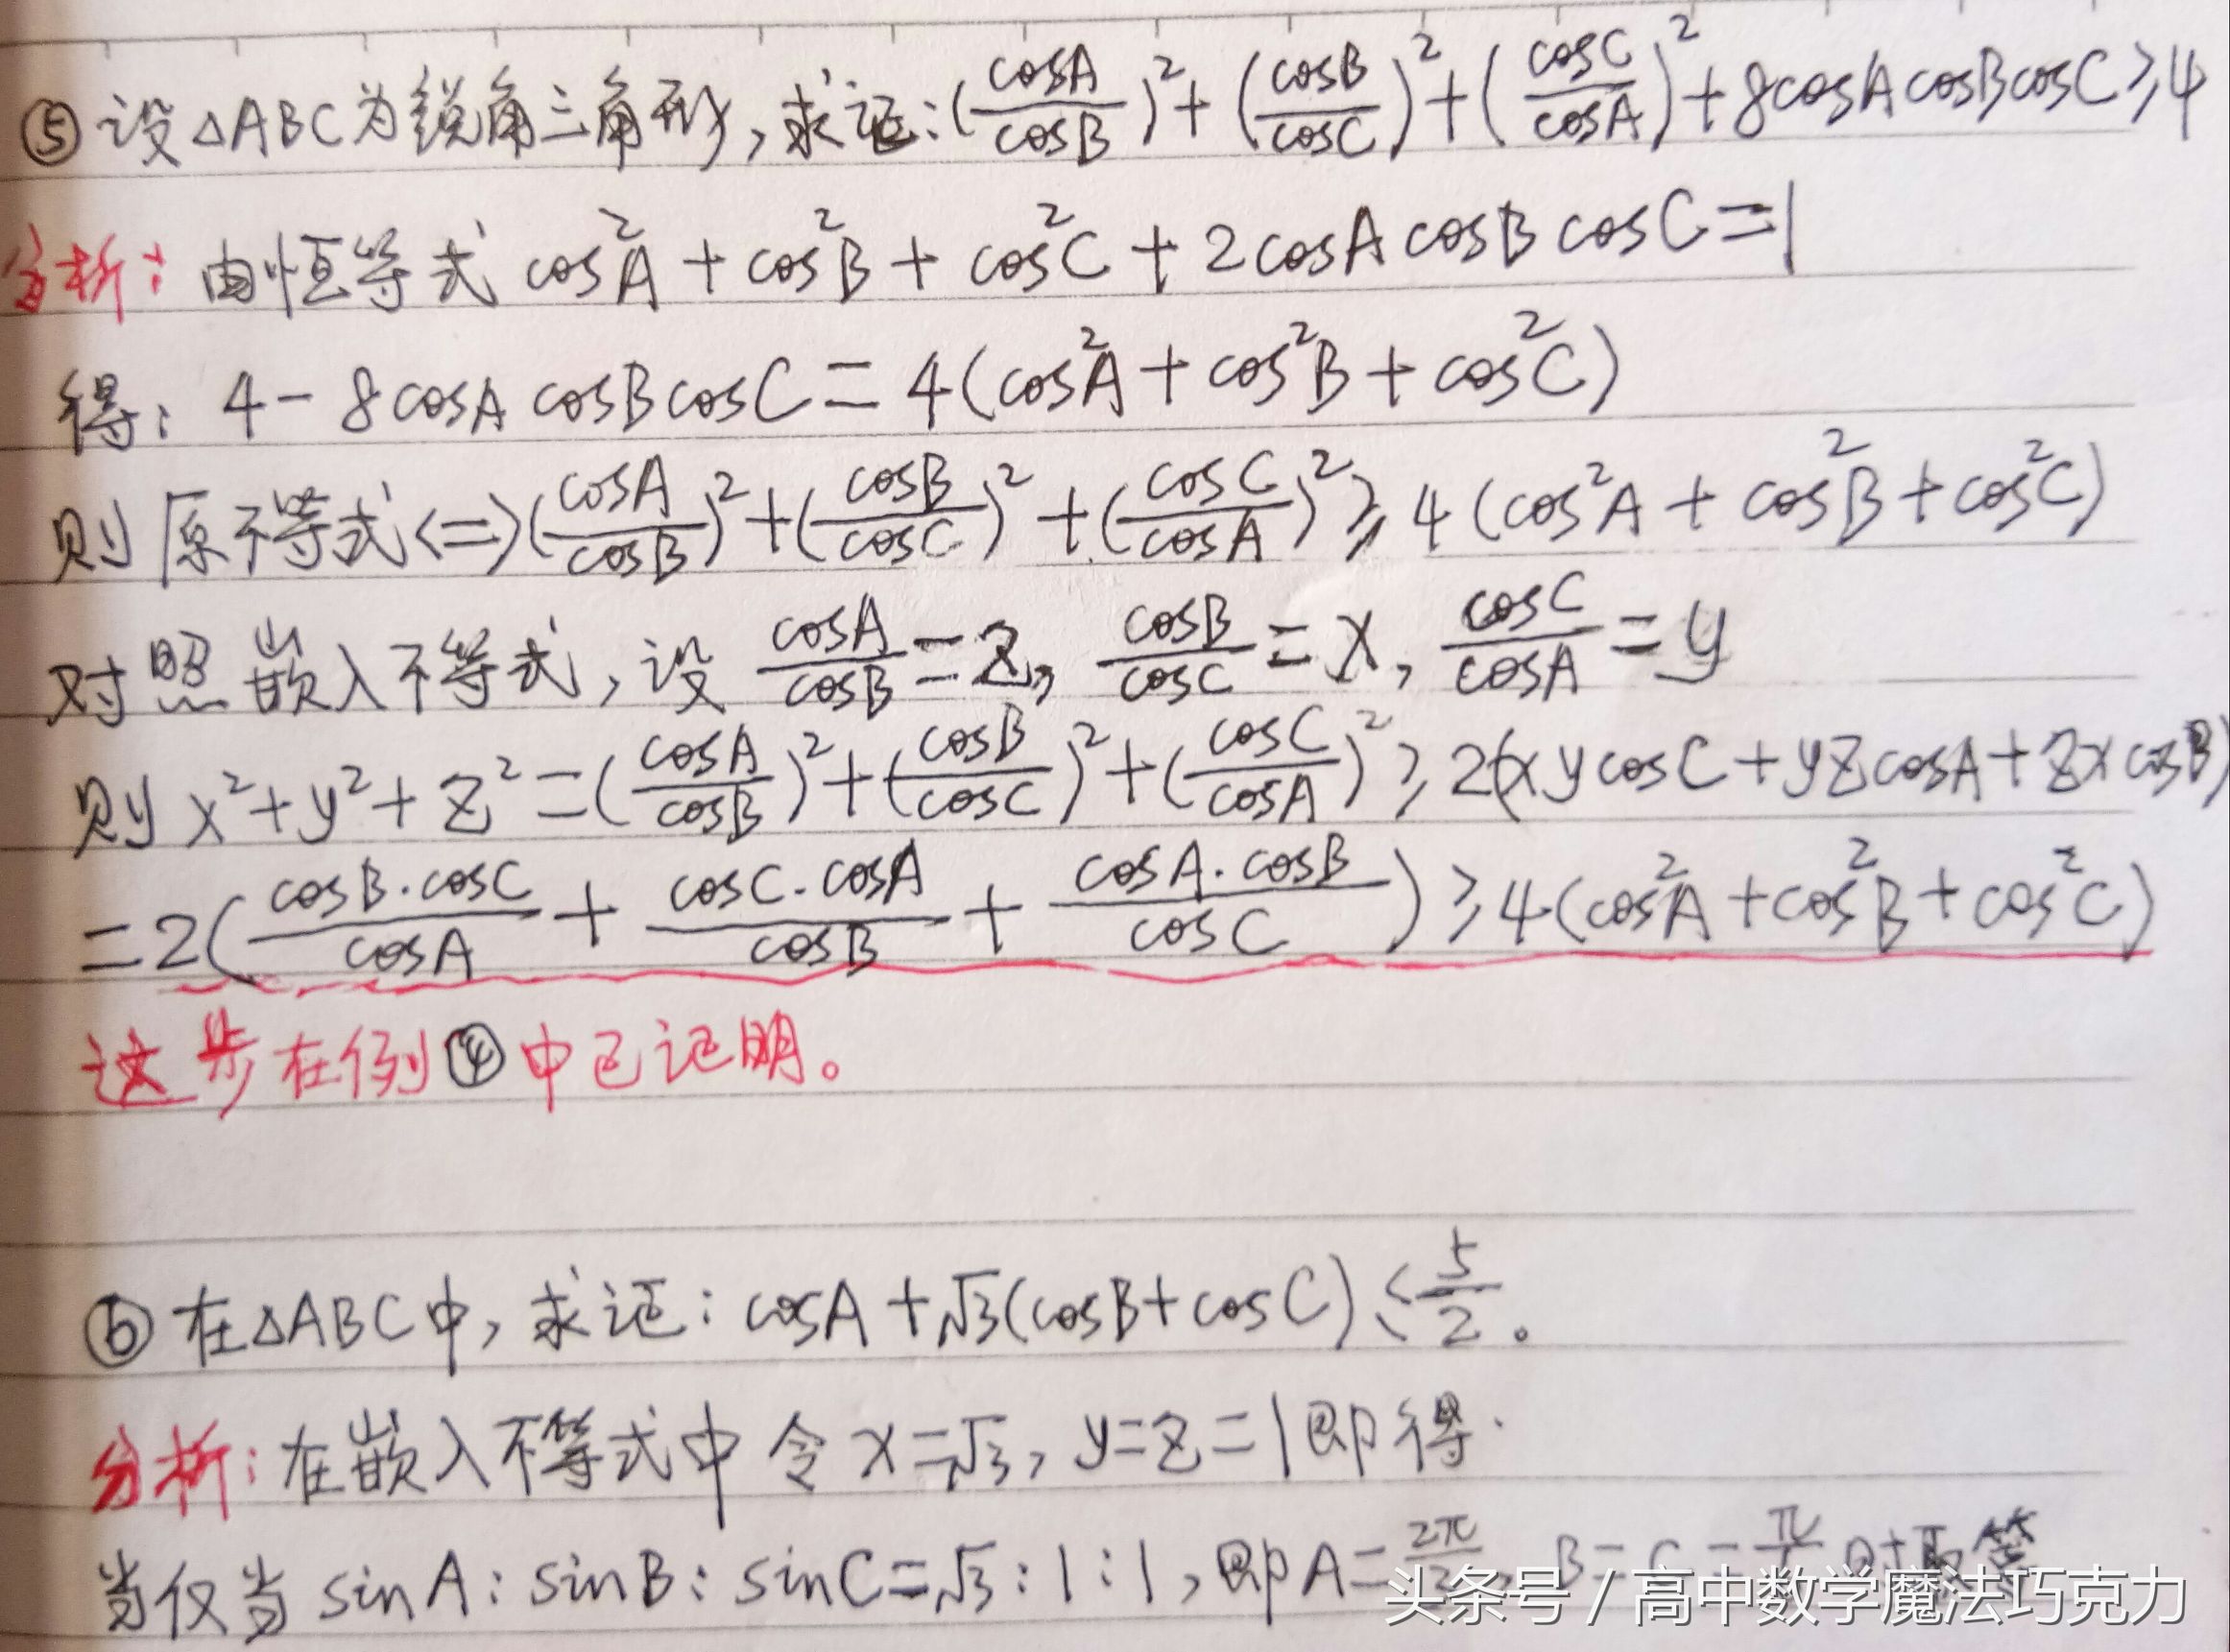 ⑤设△ABC为锐角三角形,求证:(cosA/cosB)²+(cosB/cosC)²+(cosC/cosA)²+8cosAcosBcosC≥4
分析:由恒等式cos²A+cos²B+cos²C+2cosAcosBcosC=1
得:4-8cosAcosBcosC=4(cos²A+cos²B+cos²C)
则原不等式<=>(cosA/cosB)²+(cosB/cosC)²+(cosC/cosA)²≥4(cos²A+cos²B+cos²C)
对照嵌入不等式,设cosA/cosB=z,cosB/cosC=x,cosC/cosA=y
则x²+y²+z²=(cosA/cosB)²+(cosB/cosC)²+(cosC/cosA)²≥2(xycosC+yzcosA+zxcosB)
=2(cosB·cosC/cosA+cosC·cosA/cosB+cosA·cosB/cosC)≥4(cos²A+cos²B+cos²C)
这步在例④中已证明。
⑥在△ABC中,求证:cosA+√3(cosB+cosC)≤5/2。
分析:在嵌入不等式中令x=√3,y=z=1即得.
当仅当sinA:sinB:sinC=√3:1:1,即A=2π/3,B=C=π/ 时取等
头条号/高中数学魔法巧克力